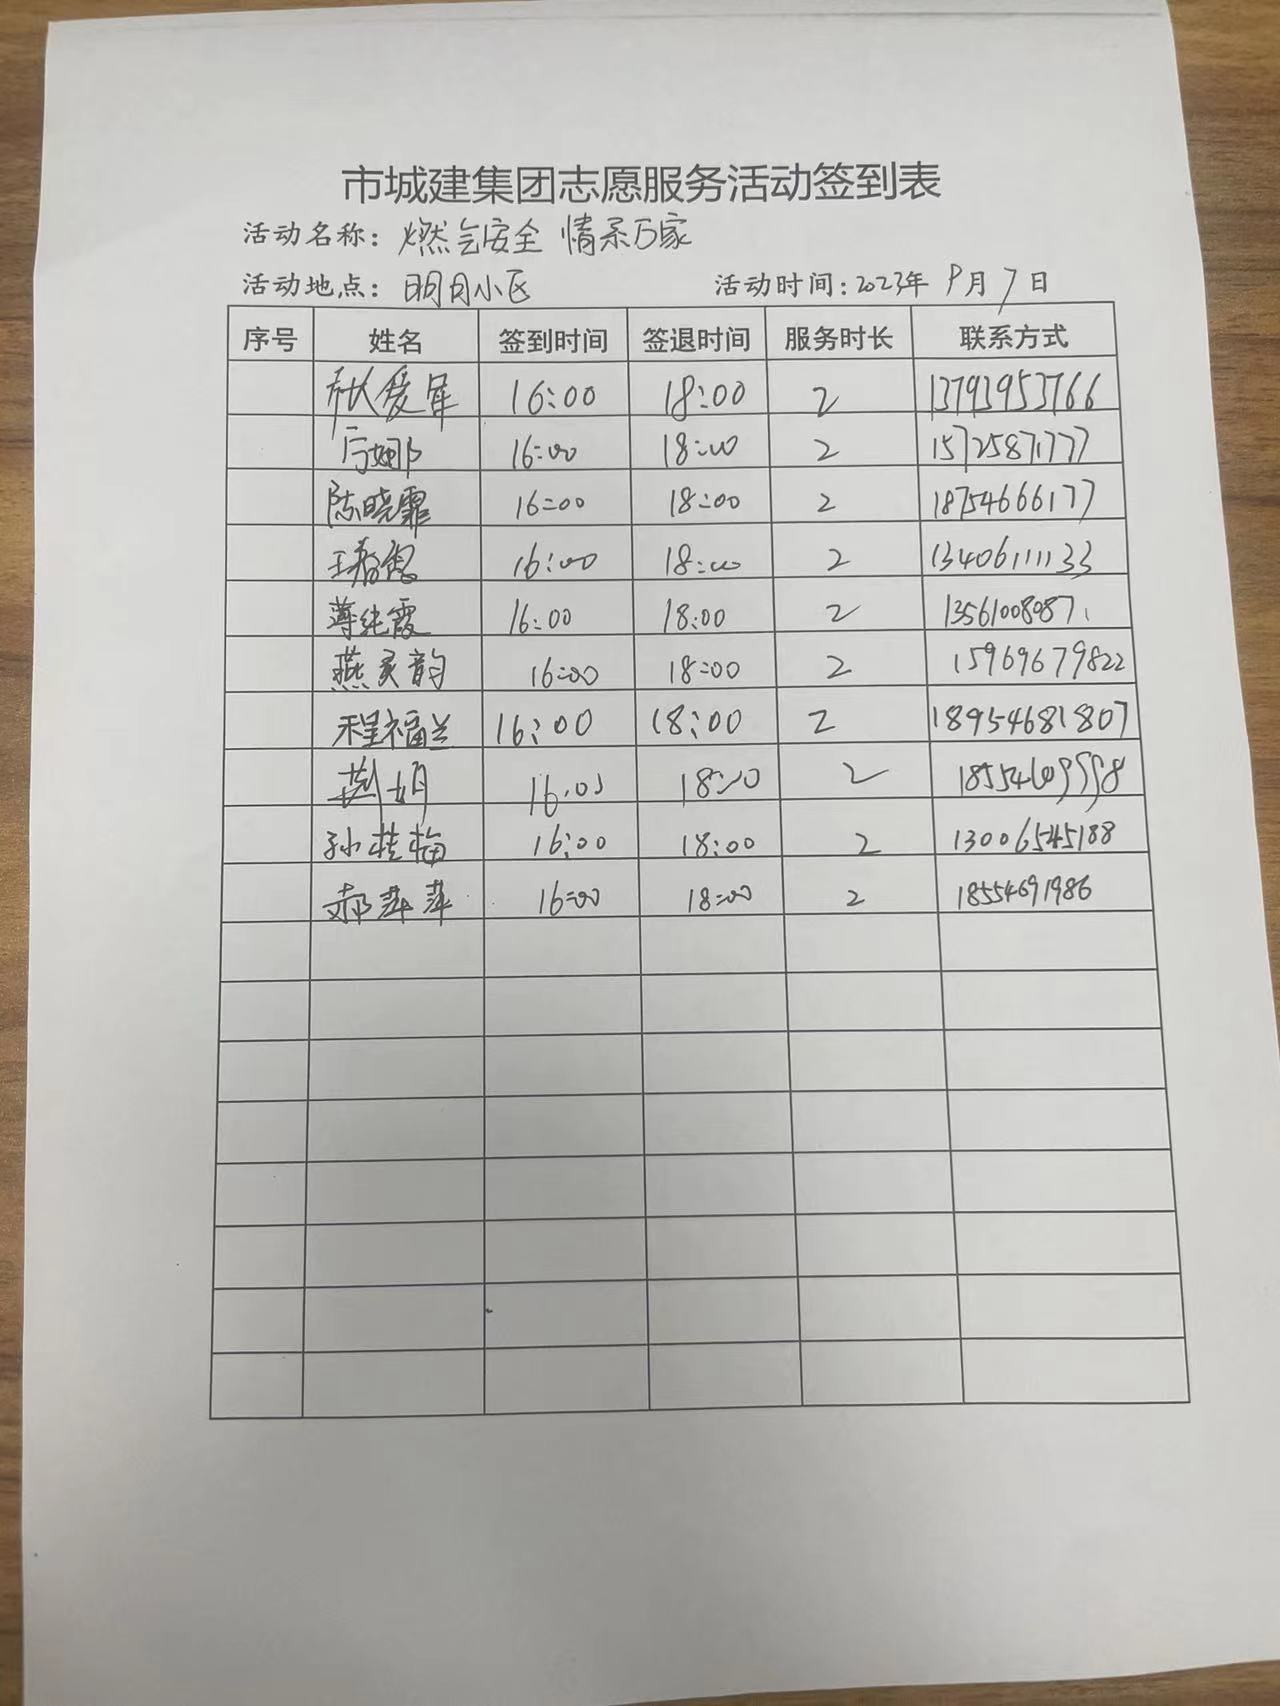 市城建集团志愿服务活动签到表
活动名称：燃气安全 情系万家
活动地点：明月小区 活动时间：2023年 9月 7日
序号 姓名 签到时间 签退时间 服务时长 联系方式
16:00 18:00 2 13793953766
16:00 18:00 2 15725871777
陈晓霏 16:00 18:00 2 18754666177
16:00 18:00 2 13406111133
薄纯霞 16:00 18:00 2 13561008087
燕灵韵 16:00 18:00 2 15969679822
程福兰 16:00 18:00 2 18954681807
娟 16:00 18:00 2
孙桂梅 16:00 18:00 2 13006545188
郝萍萍 16:00 18:00 2 18554691986